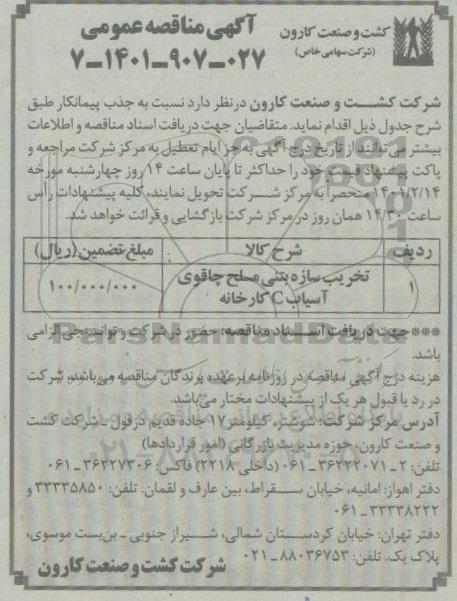 کشت و صنعت کارون
(شرکت سهامی خاص)
آگهی مناقصه عمومی
۷-۱۴۰۱-۹۰۷-۰۲۷
شرکت کشت و صنعت کارون درنظر دارد نسبت به جذب پیمانکار طبق
شرح جدول ذیل اقدام نماید. متقاضیان جهت دریافت اسناد مناقصه و اطلاعات
بیشتر می‌توانند از تاریخ درج آگهی به جز ایام تعطیل به مرکز شرکت مراجعه و
پاکت پیشنهاد قیمت خود را حداکثر تا پایان ساعت ۱۴ روز چهارشنبه مورخه
۱۴۰۱/۲/۱۴ منحصرا به مرکز شرکت تحویل نمایند، کلیه پیشنهادات رأس
ساعت ۱۴/۳۰ همان روز در مرکز شرکت بازگشایی و قرائت خواهد شد.
ردیف شرح کالا مبلغ تضمین (ریال)
۱ تخریب سازه بتنی مسلح چاقوی ۱۰۰/۰۰۰/۰۰۰
آسیاب C کارخانه
***جهت دریافت اسناد مناقصه: حضور در شرکت و توانسنجی الزامی
باشد.
هزینه درج آگهی مناقصه در روزنامه برعهده برندگان مناقصه می‌باشد، شرکت
در رد یا قبول هر یک از پیشنهادات مختار می‌باشد.
آدرس مرکز شرکت: شوشتر، کیلومتر ۱۷ جاده قدیم دزفول ـ شرکت کشت
و صنعت کارون، حوزه مدیریت بازرگانی (امور قراردادها)
تلفن: ۲ـ ۳۶۲۲۲۰۷۱ـ۰۶۱ (داخلی ۲۲۱۸) فاکس: ۳۶۲۲۷۳۰۶ـ۰۶۱
دفتر اهواز: امانیه، خیابان سقراط، بین عارف و لقمان. تلفن: ۳۳۳۳۵۸۵۰ و
۳۳۳۳۸۲۲۲ـ۰۶۱
دفتر تهران: خیابان کردستان شمالی، شیراز جنوبی ـ بن‌بست موسوی،
پلاک یک. تلفن: ۸۸۰۳۶۷۵۳ـ۰۲۱
شرکت کشت و صنعت کارون
ParsNamadData